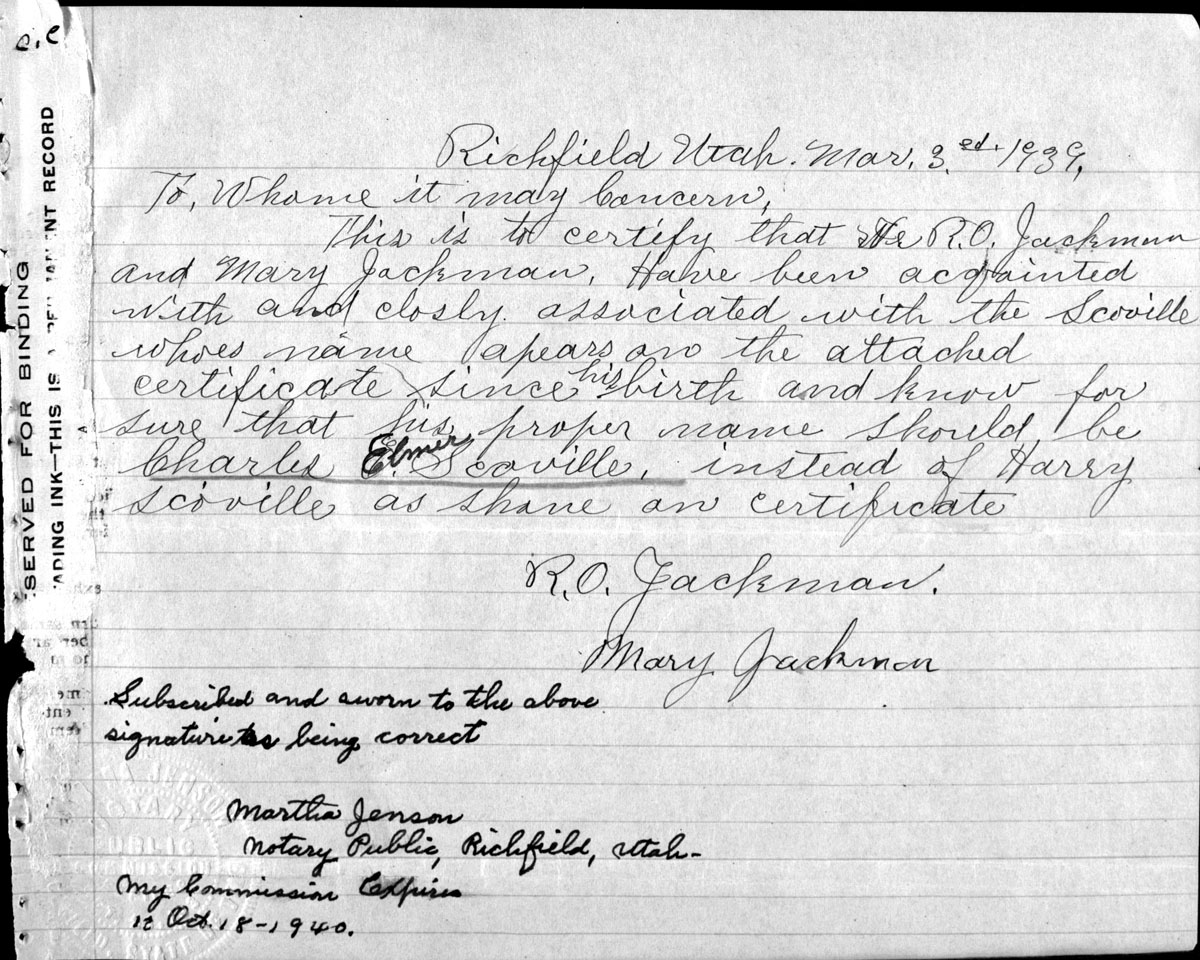 c.c
SERVED FOR BINDING
ADING INK—THIS IS A PERMANENT RECORD
Richfield Utah. Mar. 3.ed. 1939.
To, Whome it may Concern,
This is to certify that We R.O. Jackman
and Mary Jackman, Have been acqainted
with and closly associated with the Scoville
whoes name apears on the attached
certificate since his birth and know for
sure that his proper name should be
Charles Elmer Scoville, instead of Harry
Scoville as shone on certificate
R.O. Jackman.
Mary Jackman
Subscribed and sworn to the above
signature as being correct
Martha Jenson
Notary Public, Richfield, Utah-
My Commission Expires
Oct. 18-1940.